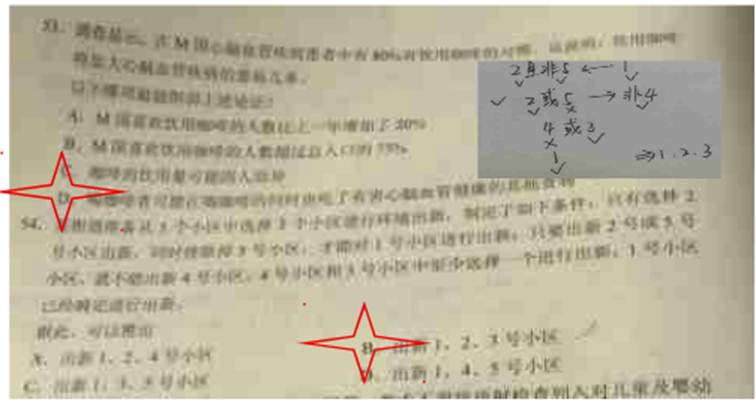 53. 调查显示，在M国心脑血管疾病患者中有80%有饮用咖啡的习惯。这说明，饮用咖啡
将加大心脑血管疾病的患病几率。
以下哪项最能削弱上述论证？
A. M国喜欢饮用咖啡的人数比上一年增加了20%
B. M国喜欢饮用咖啡的人数超过总人口的75%
C. 咖啡的饮用量可能因人而异
D. 喝咖啡者可能在喝咖啡的同时也吃了有害心脑血管健康的其他食物
54. 街道准备从5个小区中选择3个小区进行环境出新，制定了如下条件：只有选择2
号小区出新，同时排除掉5号小区，才能对1号小区进行出新；只要出新2号或5号
小区，就不能出新4号小区；4号小区和3号小区中至少选择一个进行出新；1号小区
已经确定进行出新。
据此，可以推出
A. 出新1、2、4号小区
B. 出新1、2、3号小区
C. 出新1、3、5号小区
D. 出新1、4、5号小区
2且非5 ← 1
2或5 → 非4
4或3
1
⇒1.2.3